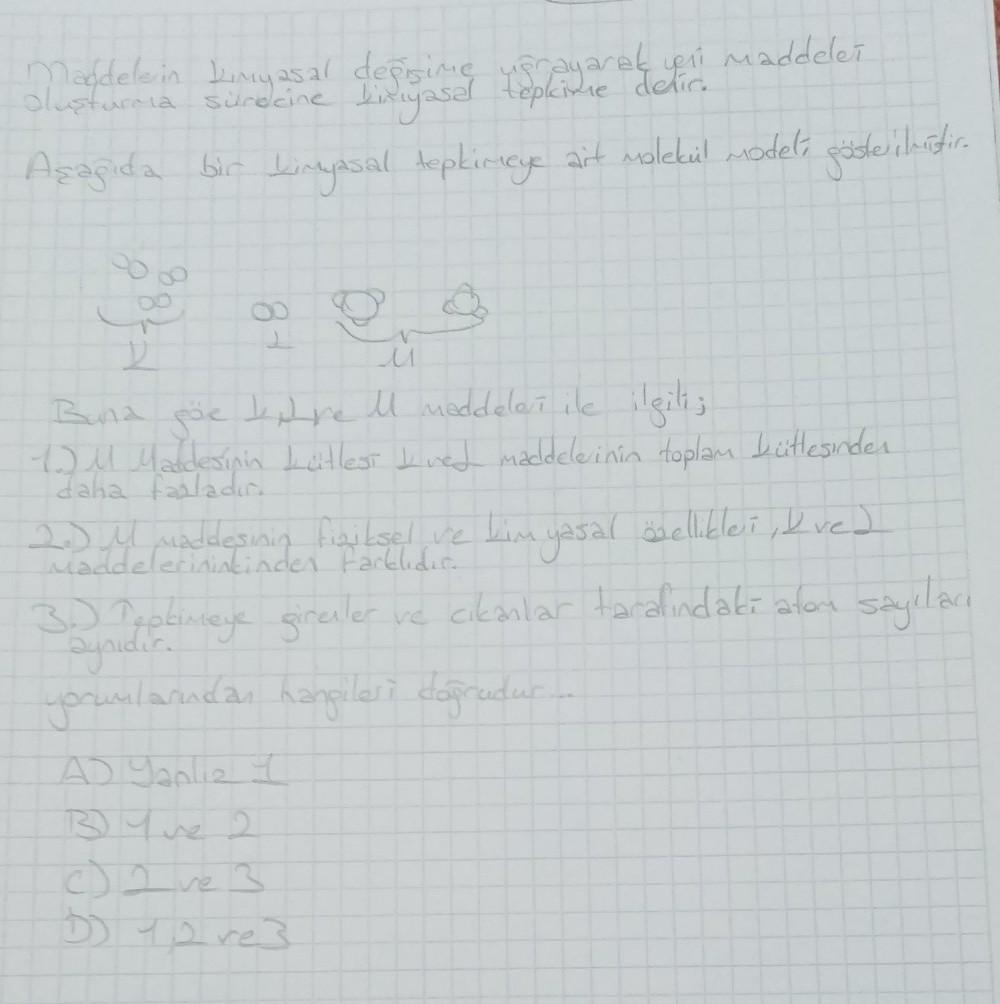 Maddelerin kimyasal değişime uğrayarak yeni maddeler
oluşturma sürecine kimyasal tepkime denir.
Aşağıda bir kimyasal tepkimeye ait molekül modeli gösterilmiştir.
K
L
M
Buna göre K, L ve M maddeleri ile ilgili;
1.) M Maddesinin kütlesi K ve L maddelerinin toplam kütlesinden
daha fazladır.
2.) M maddesinin fiziksel ve kimyasal özellikleri, K ve L
maddelerininkinden farklıdır.
3.) Tepkimeye girenler ve cıkanlar tarafındaki atom sayıları
aynıdır.
yorumlarından hangileri doğrudur...
A) Yanlız 1
B) 1 ve 2
C) 2 ve 3
D) 1,2 ve 3